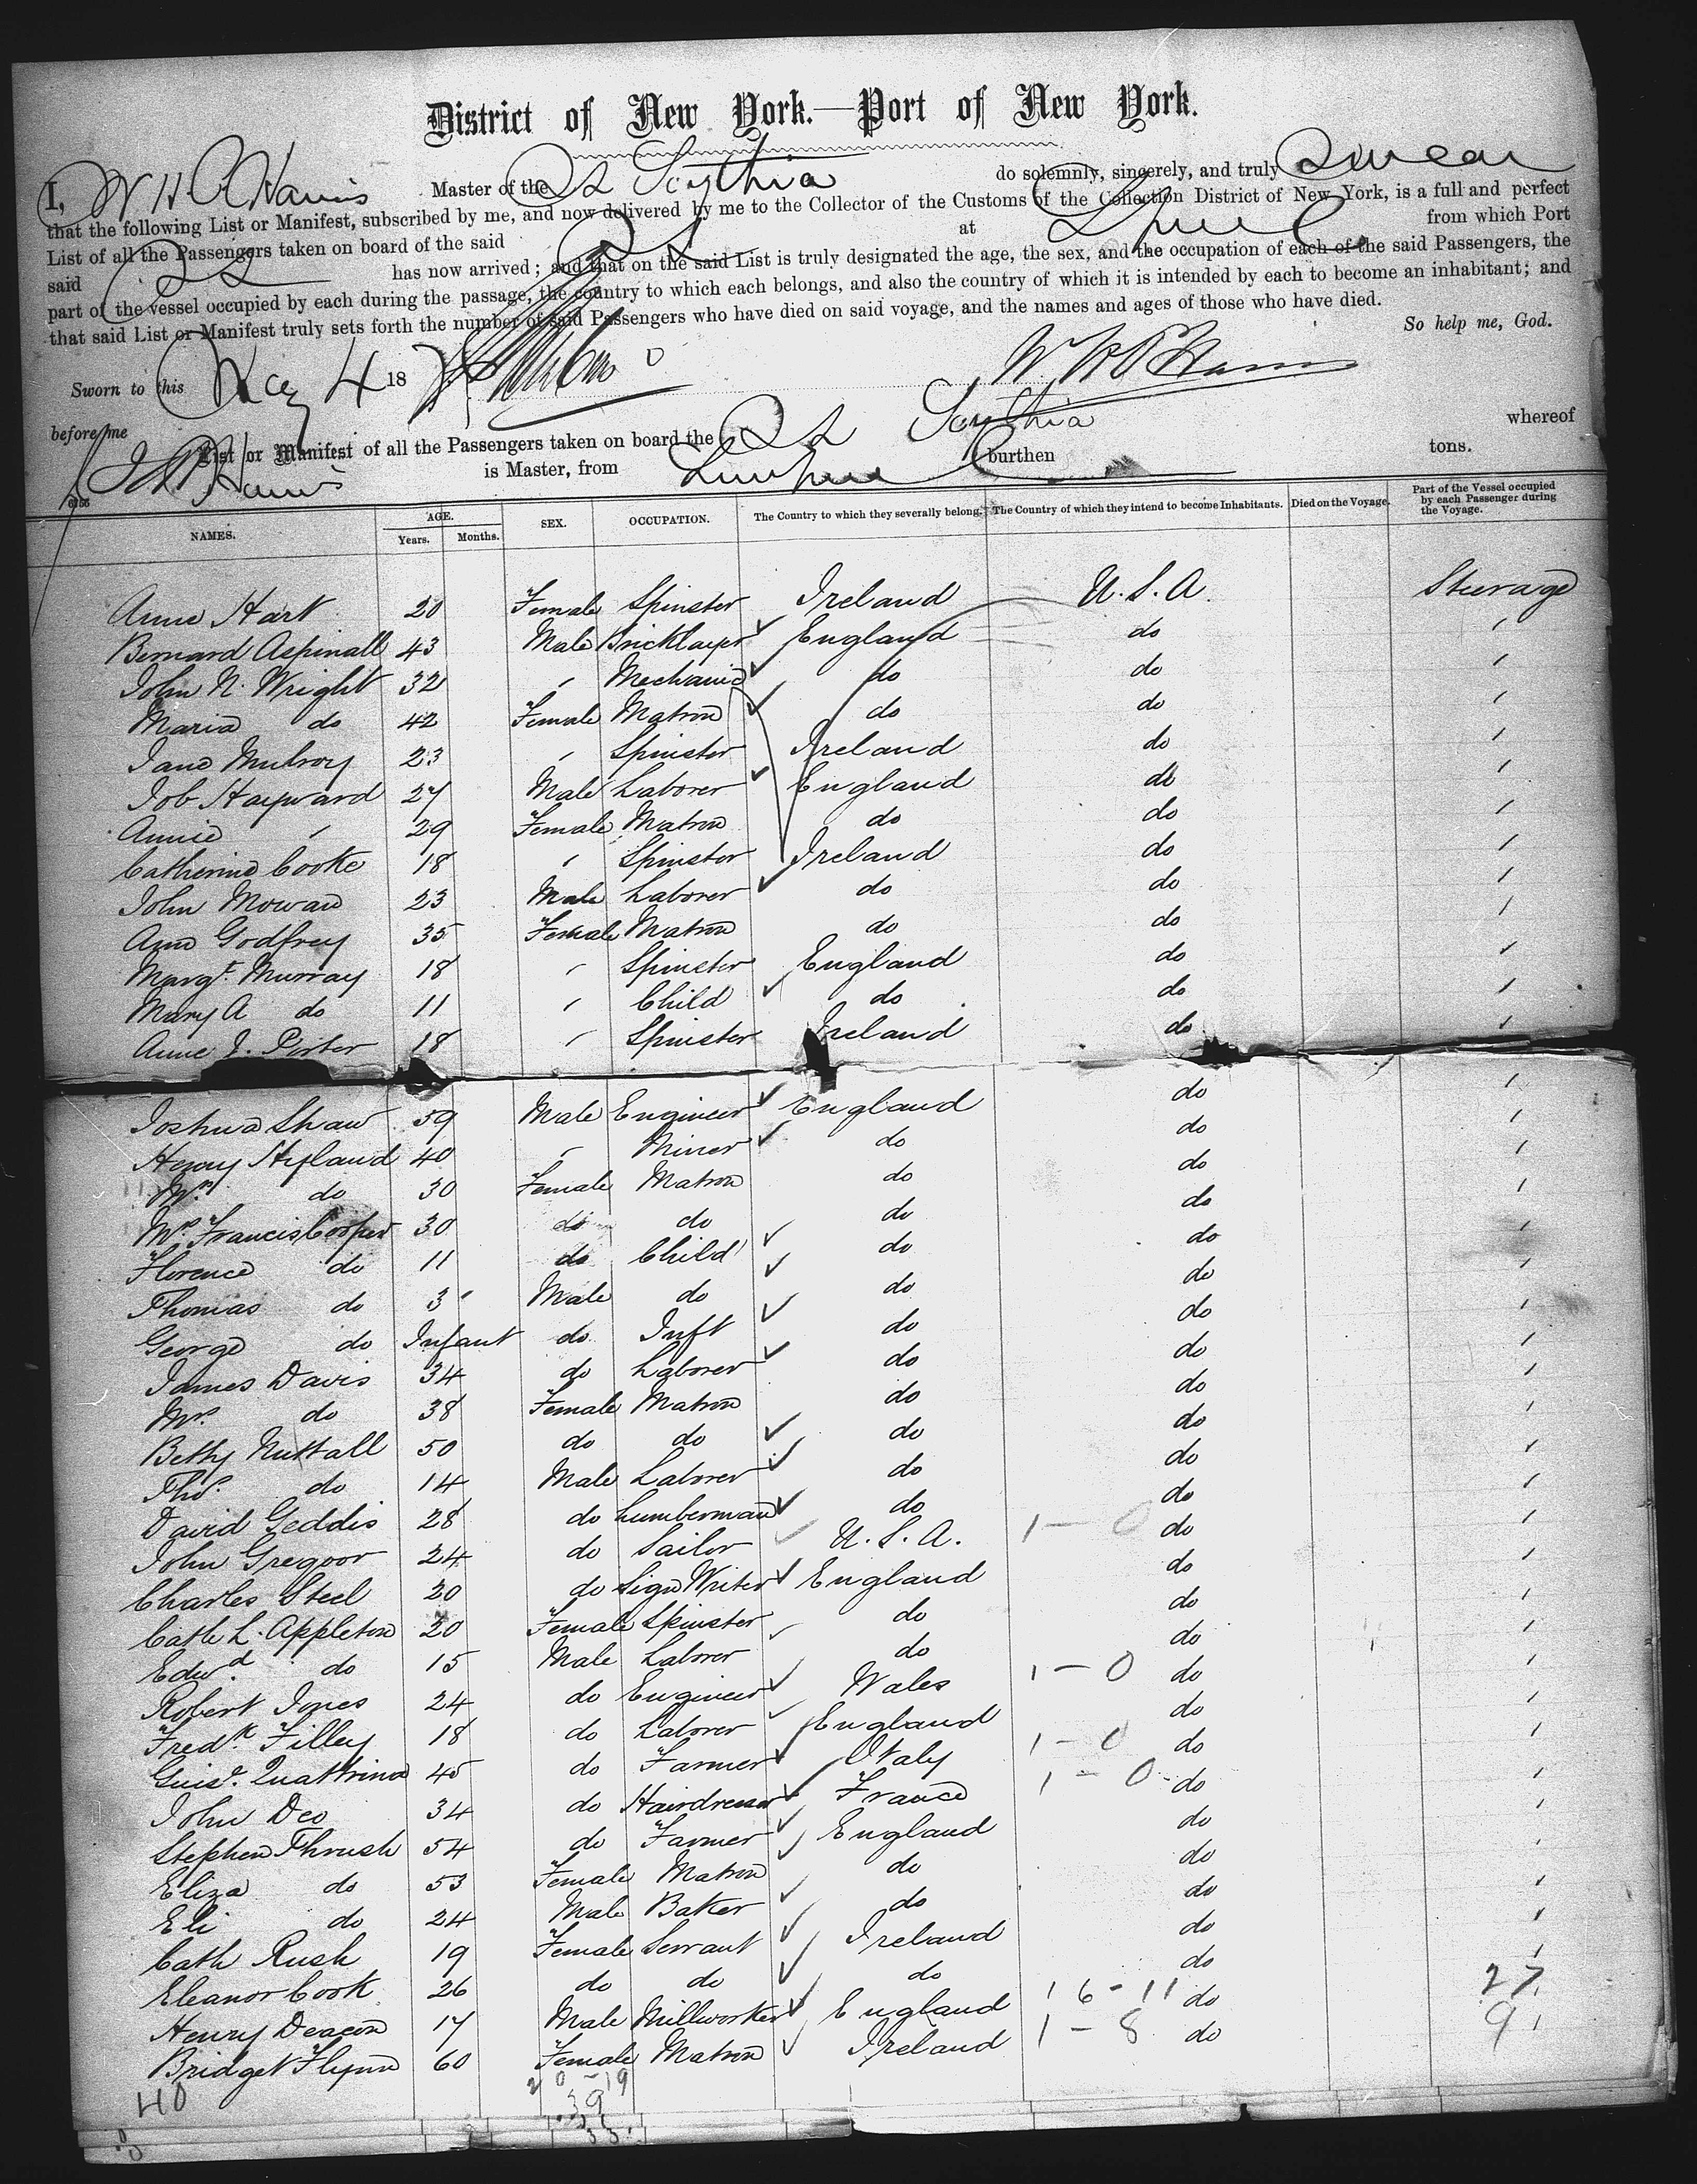 District of New York.—Port of New York.
I, W H P Hains Master of the SS Scythia do solemnly, sincerely, and truly Swear
that the following List or Manifest, subscribed by me, and now delivered by me to the Collector of the Customs of the Collection District of New York, is a full and perfect
List of all the Passengers taken on board of the said SS at Lpool from which Port
said SS has now arrived; and that on the said List is truly designated the age, the sex, and the occupation of each of the said Passengers, the
part of the vessel occupied by each during the passage, the country to which each belongs, and also the country of which it is intended by each to become an inhabitant; and
that said List or Manifest truly sets forth the number of said Passengers who have died on said voyage, and the names and ages of those who have died.
So help me, God.
Sworn to this 4 18 W. H P Hains
before me
List or Manifest of all the Passengers taken on board the SS Scythia whereof
Hains is Master, from Liverpool burthen tons.
6356
NAMES. AGE. Years. Months. SEX. OCCUPATION. The Country to which they severally belong. The Country of which they intend to become Inhabitants. Died on the Voyage. Part of the Vessel occupied by each Passenger during the Voyage.
Anne Hart 20 Female Spinster Ireland U.S.A. Steerage
Bernard Aspinall 43 Male Bricklayer England do "
John N. Wright 32 " Mechanic do do "
Maria do 42 Female Matron do do "
Jane Mulroy 23 " Spinster Ireland do "
Job Hayward 27 Male Laborer England do "
Annie " 29 Female Matron do do "
Catherine Cooke 18 " Spinster Ireland do "
John Mowan 23 Male Laborer do do "
Ann Godfrey 35 Female Matron do do "
Margt. Murray 18 " Spinster England do "
Mary A do 11 " Child do do "
Anne J. Porter 18 " Spinster Ireland do "
Joshua Shaw 59 Male Engineer England do "
Henry Hyland 40 " Miner do do "
Mrs. do 30 Female Matron do do "
Mrs Francis Cooper 30 do do do do "
Florence do 11 do Child do do "
Thomas do 3 Male do do do "
George do Infant do Inft do do "
James Davis 34 do Laborer do do "
Mrs. do 38 Female Matron do do "
Betty Nuttall 50 do do do do "
Tho. do 14 Male Laborer do do "
David Geddis 28 do Lumberman do do "
John Gregoor 24 do Sailor U.S.A. 1 - 0 do "
Charles Steel 20 do Sign Writer England do "
Cath L. Appleton 20 Female Spinster do do "
Edwd. do 15 Male Laborer do do "
Robert Jones 24 do Engineer Wales 1 - 0 do "
Fredk. Filley 18 do Laborer England do "
Guisr. Quattrino 45 do Farmer Italy 1 - 0 do "
John Deo 34 do Hairdresser France 1 - 0 do "
Stephen Thrush 54 do Farmer England do "
Eliza do 53 Female Matron do do "
Eli do 24 Male Baker do do "
Cath Rush 19 Female Servant Ireland do "
Eleanor Cook 26 do do do do "
Henry Deacon 17 Male Millworker England 16 - 11 do 27
Bridget Flynn 60 Female Matron Ireland 1 - 8 do 9
40 20 - 19
39